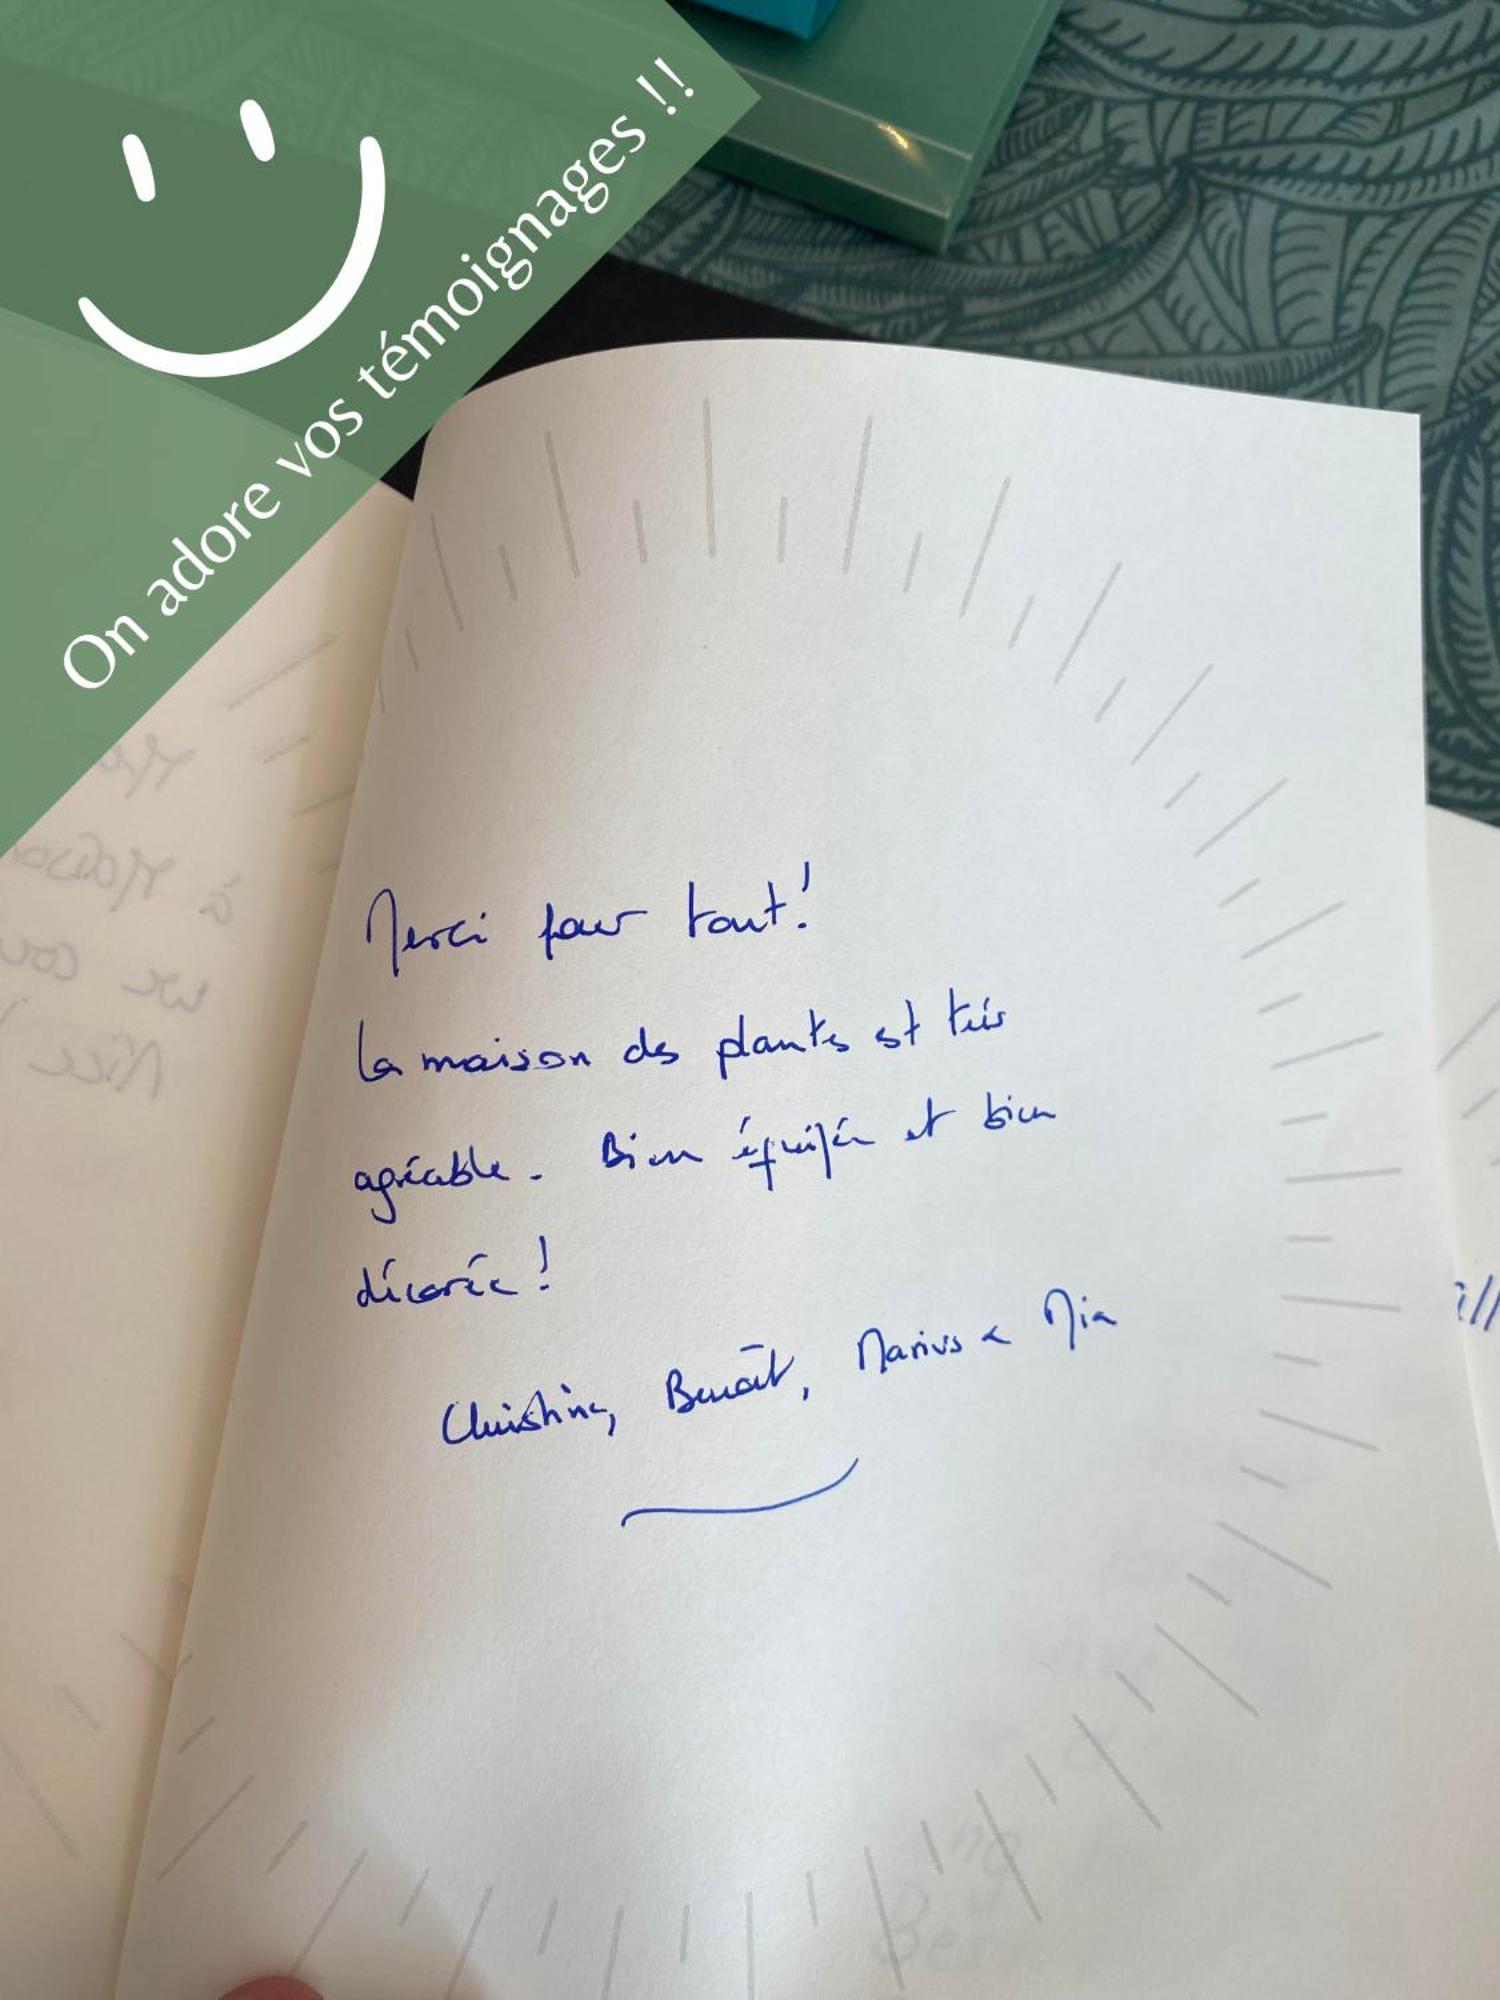 On adore vos témoignages !!
Merci pour tout!
La maison des plantes est très
agréable. Bien équipée et bien
décorée !
Christine, Benoît, Marius & Mia
à Maison
Nice